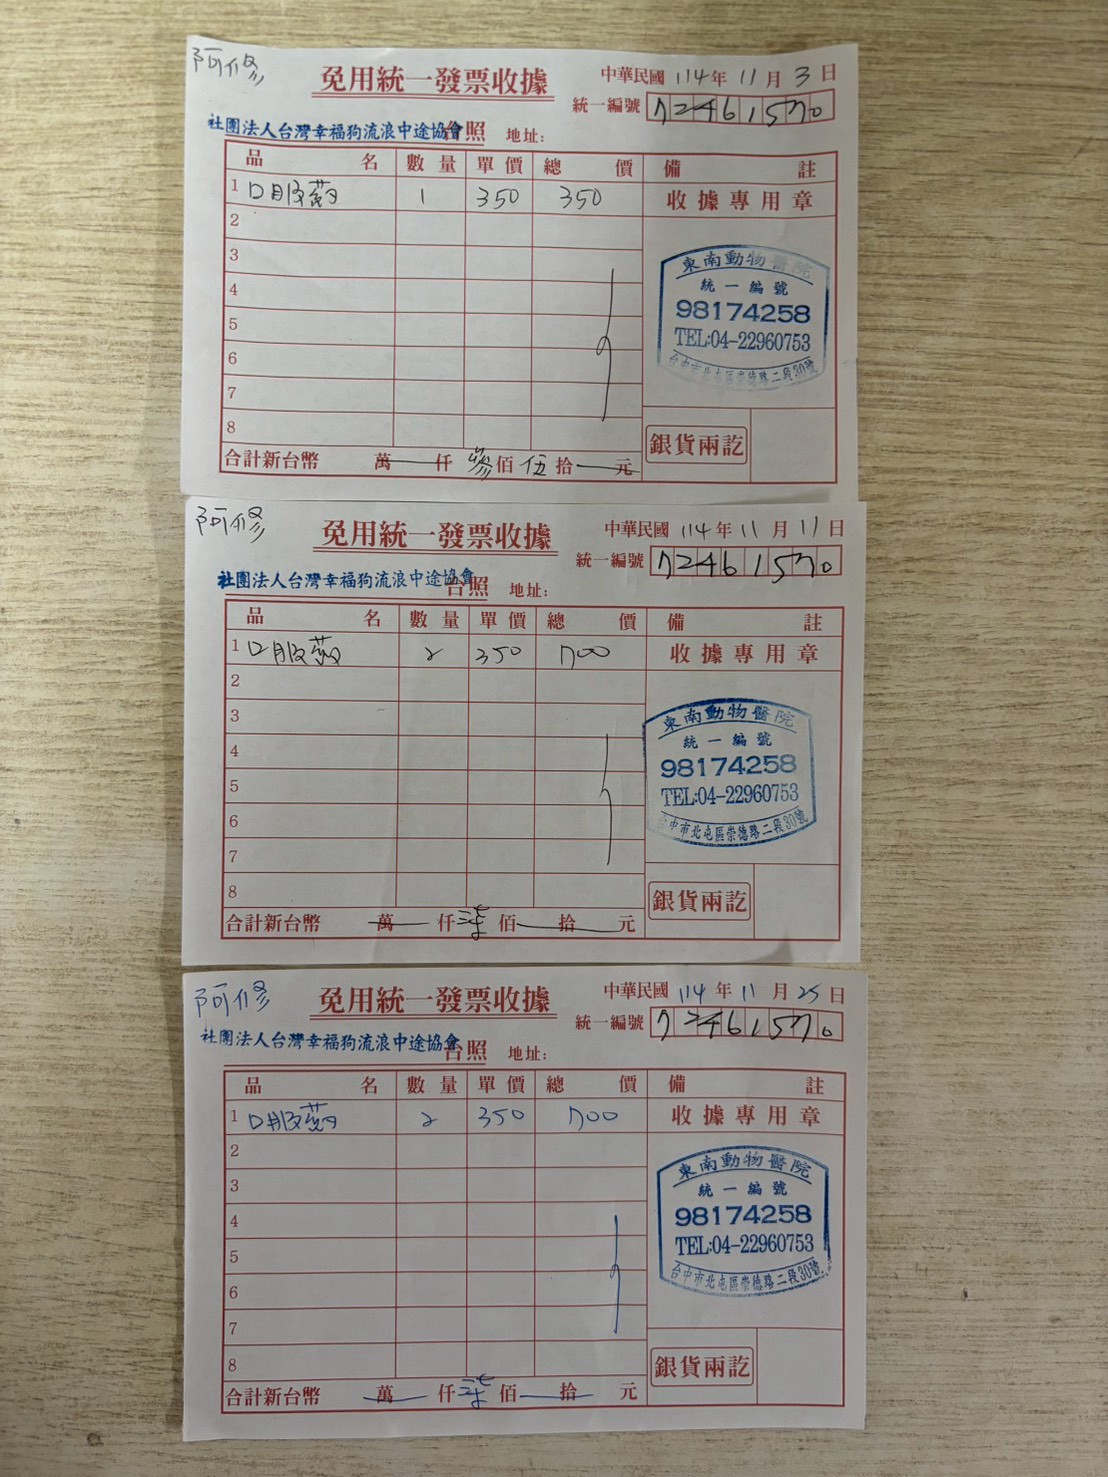 阿修
免用統一發票收據
中華民國 114 年 11 月 3 日
統一編號 72461570
社團法人台灣幸福狗流浪中途協會 台照 地址:
品 名 數 量 單 價 總 價 備 註
1 口服藥 1 350 350 收據專用章
2
3
4
5
6
7
8
東南動物醫院
統一編號
98174258
TEL:04-22960753
台中市北屯區崇德路二段30號
銀貨兩訖
合計新台幣 萬 仟 參 佰 伍 拾 元
阿修
免用統一發票收據
中華民國 114 年 11 月 11 日
統一編號 72461570
社團法人台灣幸福狗流浪中途協會 台照 地址:
品 名 數 量 單 價 總 價 備 註
1 口服藥 2 350 700 收據專用章
2
3
4
5
6
7
8
東南動物醫院
統一編號
98174258
TEL:04-22960753
台中市北屯區崇德路二段30號
銀貨兩訖
合計新台幣 萬 仟 柒 佰 拾 元
阿修
免用統一發票收據
中華民國 114 年 11 月 25 日
統一編號 72461570
社團法人台灣幸福狗流浪中途協會 台照 地址:
品 名 數 量 單 價 總 價 備 註
1 口服藥 2 350 700 收據專用章
2
3
4
5
6
7
8
東南動物醫院
統一編號
98174258
TEL:04-22960753
台中市北屯區崇德路二段30號
銀貨兩訖
合計新台幣 萬 仟 柒 佰 拾 元